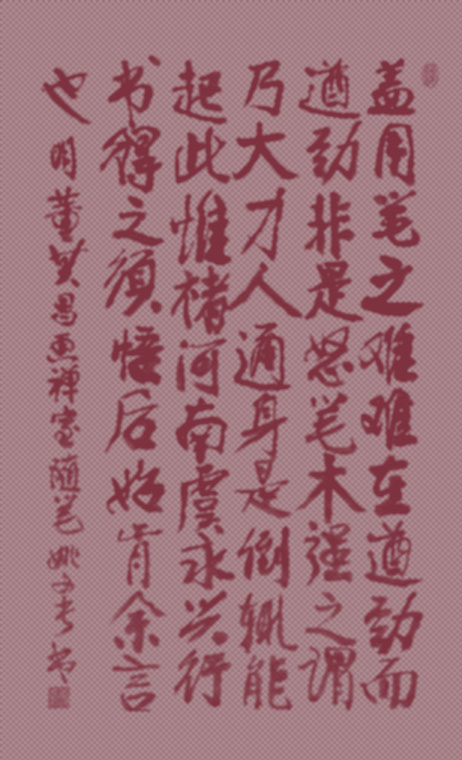 盖用笔之难难在遒劲而
遒劲非是怒笔木强之谓
乃大力人通身是倒辄能
起此惟褚河南虞永兴行
书得之须悟后始肯余言
也 明董其昌画禅室随笔 姚
书